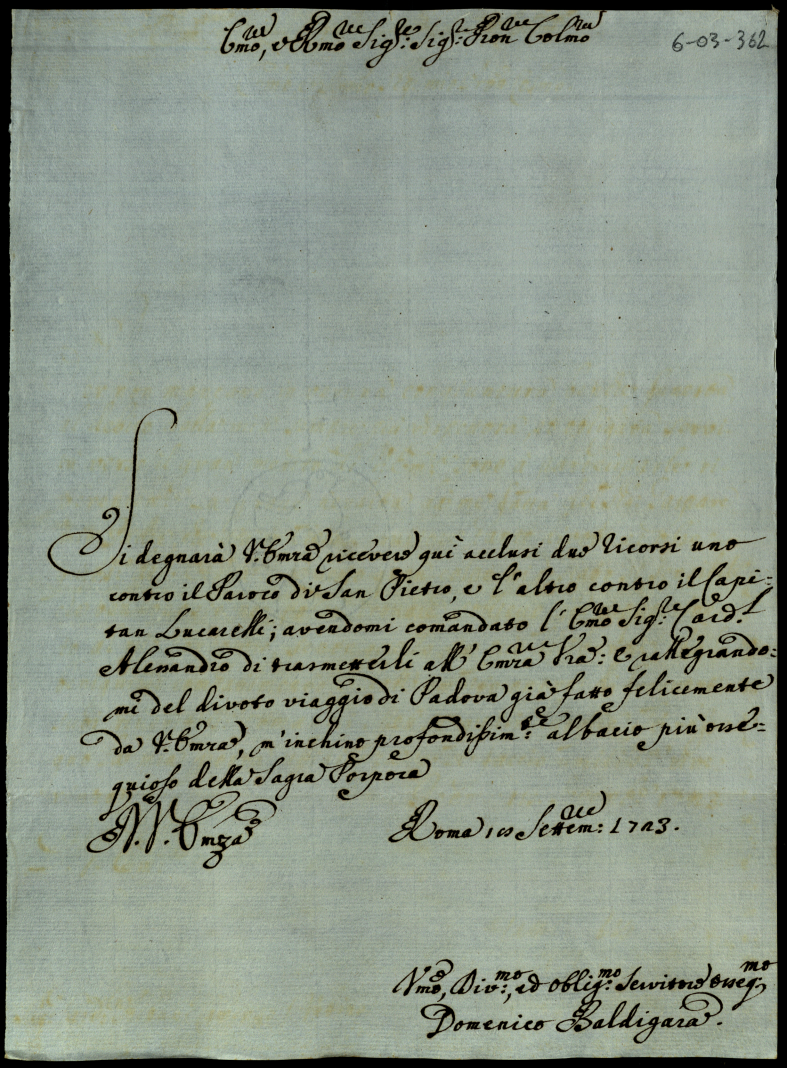 Em̃o, e Rm̃o Sig.re Sig.re Pron Colmo
6-03-362
Si degnarà V. Em̃za ricevere quì acclusi due ricorsi uno
contro il Paroco di San Pietro, e l'altro contro il Capi-
tan Lucarelli; avendomi comandato l'Em̃o Sig.re Card.l
Alessandro di trasmetterli all'Em̃za Vra: e rallegrando-
mi del divoto viaggio di Padova già fatto felicemente
da V. Em̃za, m'inchino profondissim.te al bacio più osse-
quioso della Sagra Porpora
Di V. Em̃za Roma Settem: 1723.
Vm̃o, Div:mo, ed oblig:mo Servitore osseq:mo
Domenico Baldigara.